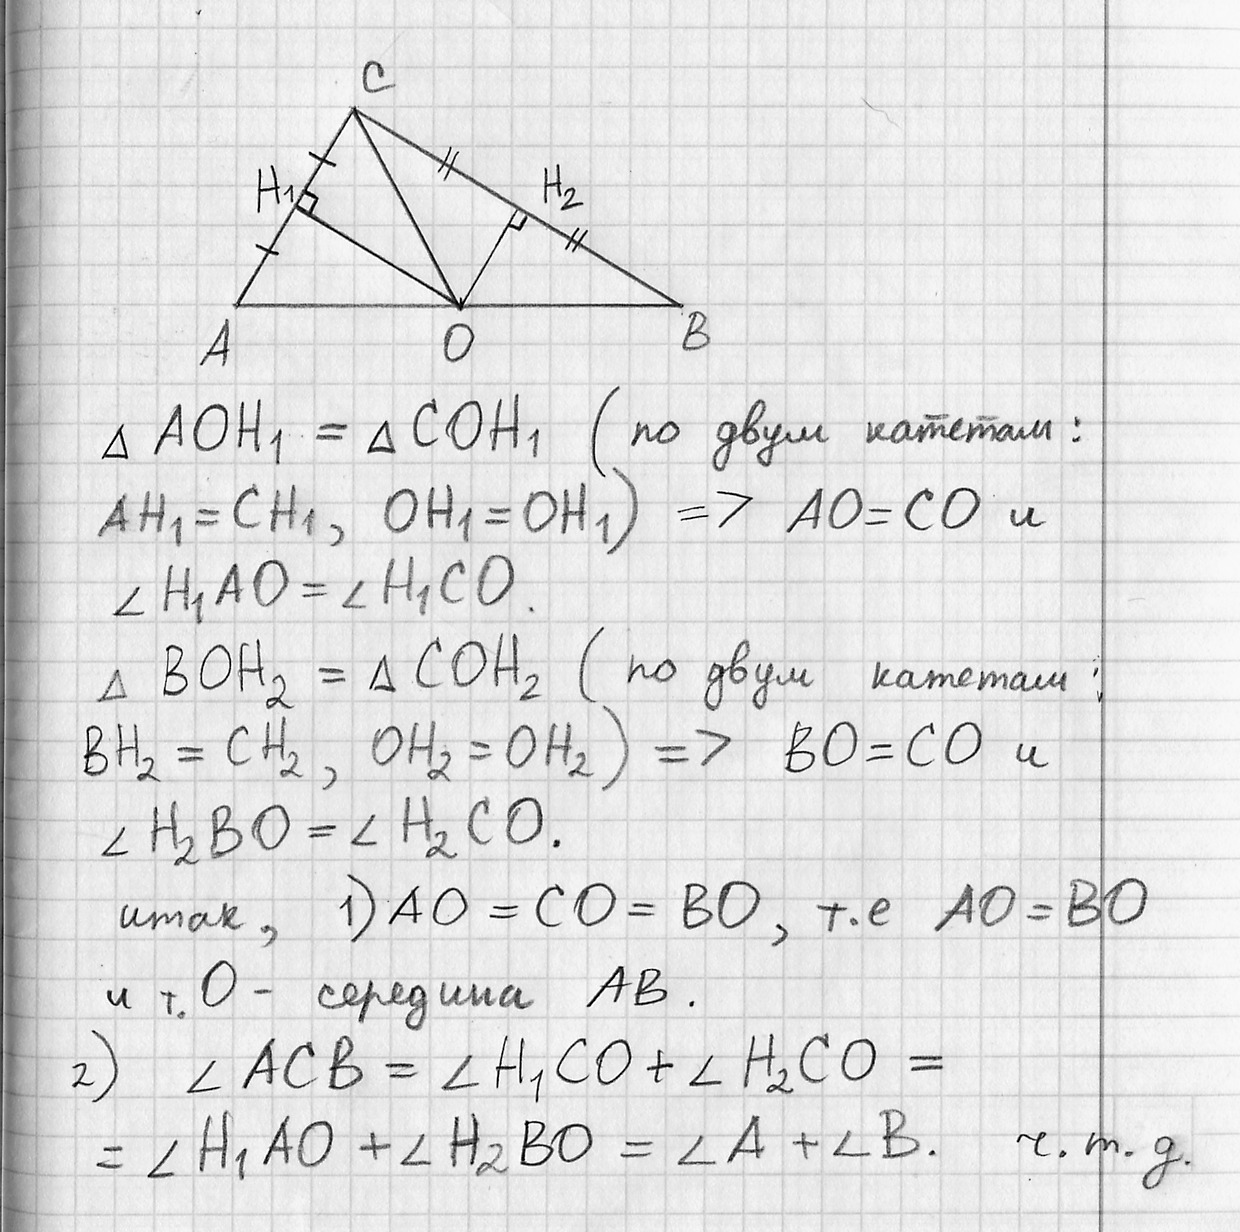 C
H₁ H₂
A O B
Δ AOH₁ = Δ COH₁ (по двум катетам:
AH₁ = CH₁, OH₁ = OH₁) => AO = CO и
∠H₁AO = ∠H₁CO.
Δ BOH₂ = Δ COH₂ (по двум катетам:
BH₂ = CH₂, OH₂ = OH₂) => BO = CO и
∠H₂BO = ∠H₂CO.
итак, 1) AO = CO = BO, т.е AO = BO
и т. O - середина AB.
2) ∠ACB = ∠H₁CO + ∠H₂CO =
= ∠H₁AO + ∠H₂BO = ∠A + ∠B. ч.т.д.